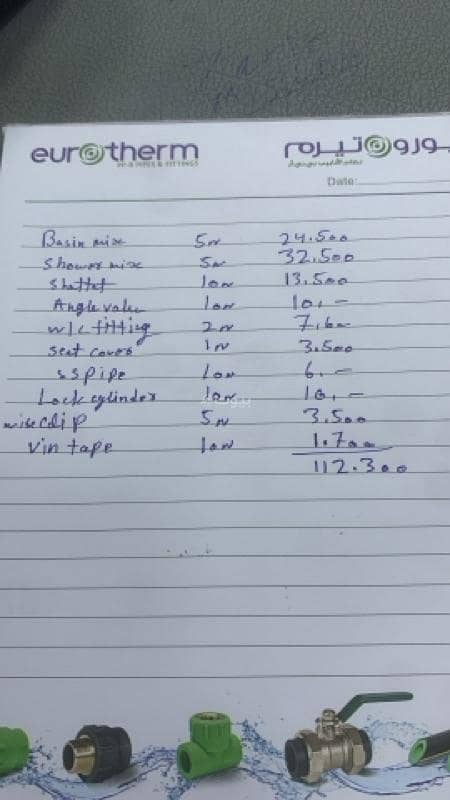 eurotherm
يوروتيرم
PP-R PIPES & FITTINGS
Date:
Basin mix 5N 24.500
Shower mix 5N 32.500
Shattaf 10N 13.500
Angle valve 10N 10.-
w/c fitting 2N 7.600
seat cover 1N 3.500
SS pipe 10N 6.-
Lock cylinder 10N 10.-
wire clip 5N 3.500
Vin tape 10N 1.700
112.300